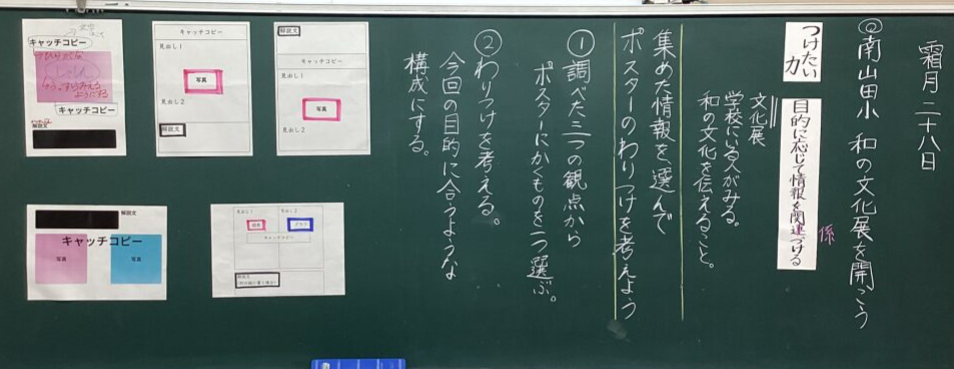 霜月二十八日
◎南山田小 和の文化展を開こう
つけたい力
目的に応じて情報を関連づける
係
文化展
学校にいる人がみる。
和の文化を伝えること。
集めた情報を選んで
ポスターのわりつけを考えよう
①調べた三つの観点から
ポスターにかくものを二つ選ぶ。
②わりつけを考える。
今回の目的に合うような
構成にする。
キャッチコピー
キャッチコピー
解説文
キャッチコピー
見出し1
写真
見出し2
解説文
解説文
キャッチコピー
見出し1
写真
見出し2
解説文
キャッチコピー
写真
写真
見出し1
見出し2
キャッチコピー